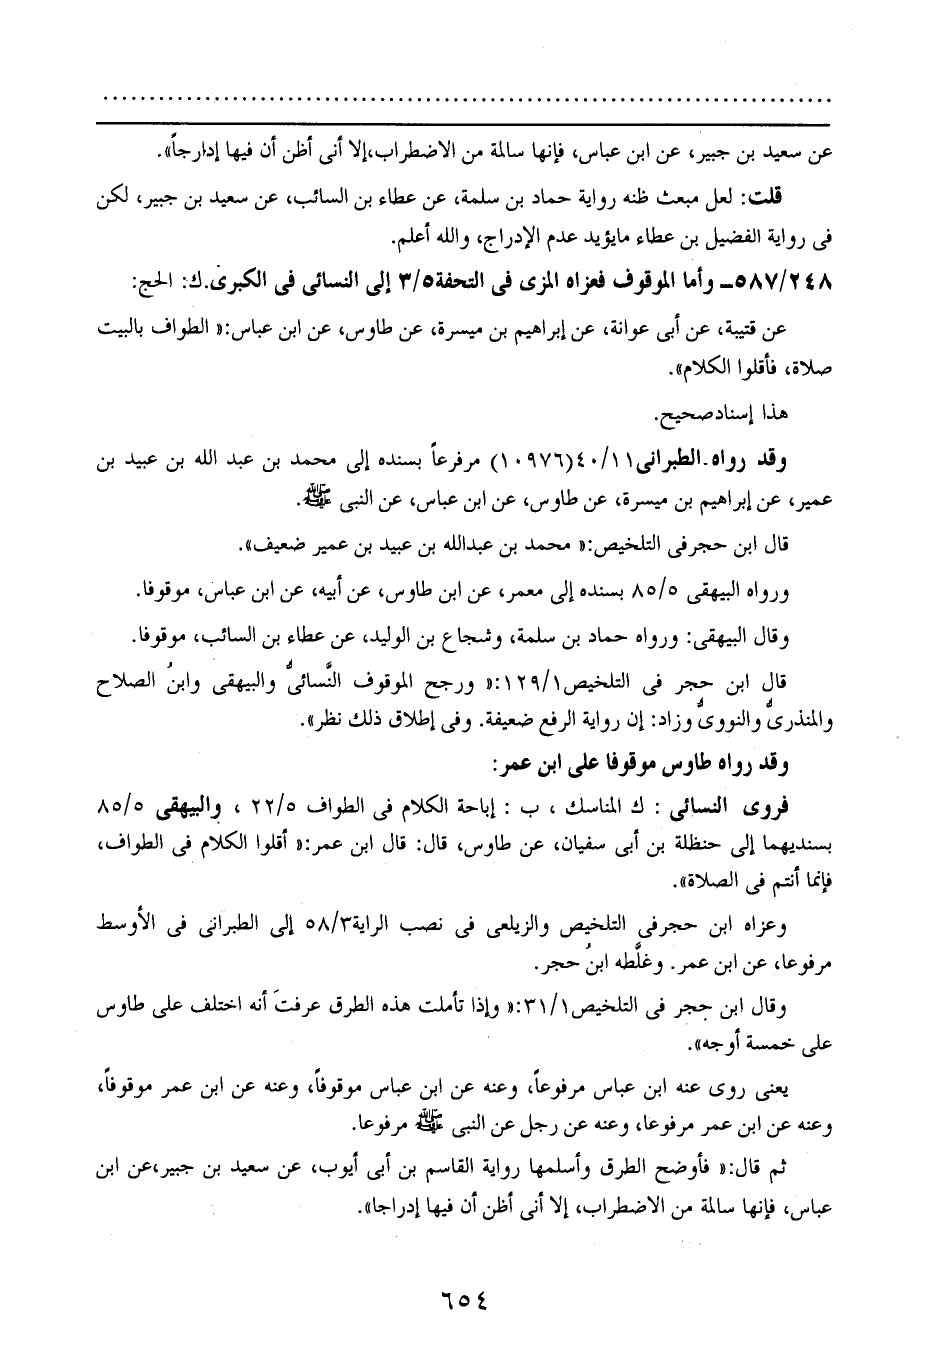 عن سعيد بن جبير، عن ابن عباس، فإنها سالمة من الاضطراب،إلا أنى أظن أن فيها إدارجاً».
قلت: لعل مبعث ظنه رواية حماد بن سلمة، عن عطاء بن السائب، عن سعيد بن جبير، لكن
فى رواية الفضيل بن عطاء مايؤيد عدم الإدراج، والله أعلم.
٥٨٧/٢٤٨ــ وأما الموقوف فعزاه المزى فى التحفة٣/٥ إلى النسائى فى الكبرى.ك: الحج:
عن قتيبة، عن أبى عوانة، عن إبراهيم بن ميسرة، عن طاوس، عن ابن عباس:« الطواف بالبيت
صلاة، فأقلوا الكلام».
هذا إسنادصحيح.
وقد رواه.الطبرانى٤٠/١١(١٠٩٧٦) مرفرعاً بسنده إلى محمد بن عبد الله بن عبيد بن
عمير، عن إبراهيم بن ميسرة، عن طاوس، عن ابن عباس، عن النبى ﷺ.
قال ابن حجرفى التلخيص:« محمد بن عبدالله بن عبيد بن عمير ضعيف».
ورواه البيهقى ٨٥/٥ بسنده إلى معمر، عن ابن طاوس، عن أبيه، عن ابن عباس، موقوفا.
وقال البيهقى: ورواه حماد بن سلمة، وشجاع بن الوليد، عن عطاء بن السائب، موقوفا.
قال ابن حجر فى التلخيص١٢٩/١:« ورجح الموقوف النَّسائىُّ والبيهقى وابنُ الصلاح
والمنذرىُّ والنووىُّ وزاد: إن رواية الرفع ضعيفة. وفى إطلاق ذلك نظر».
وقد رواه طاوس موقوفا على ابن عمر:
فروى النسائى : ك المناسك ، ب : إباحة الكلام فى الطواف ٢٢/٥ ، والبيهقى ٨٥/٥
بسنديهما إلى حنظلة بن أبى سفيان، عن طاوس، قال: قال ابن عمر:« أقلوا الكلام فى الطواف،
فإنما أنتم فى الصلاة».
وعزاه ابن حجرفى التلخيص والزيلعى فى نصب الراية٥٨/٣ إلى الطبرانى فى الأوسط
مرفوعا، عن ابن عمر. وغلَّطه ابنُ حجر.
وقال ابن حجر فى التلخيص٣١/١:« وإذا تأملت هذه الطرق عرفتَ أنه اختلف على طاوس
على خمسة أوجه».
يعنى روى عنه ابن عباس مرفوعاً، وعنه عن ابن عباس موقوفاً، وعنه عن ابن عمر موقوفاً،
وعنه عن ابن عمر مرفوعا، وعنه عن رجل عن النبى ﷺ مرفوعا.
ثم قال:« فأوضح الطرق وأسلمها رواية القاسم بن أبى أيوب، عن سعيد بن جبير،عن ابن
عباس، فإنها سالمة من الاضطراب، إلا أنى أظن أن فيها إدراجا».
٦٥٤